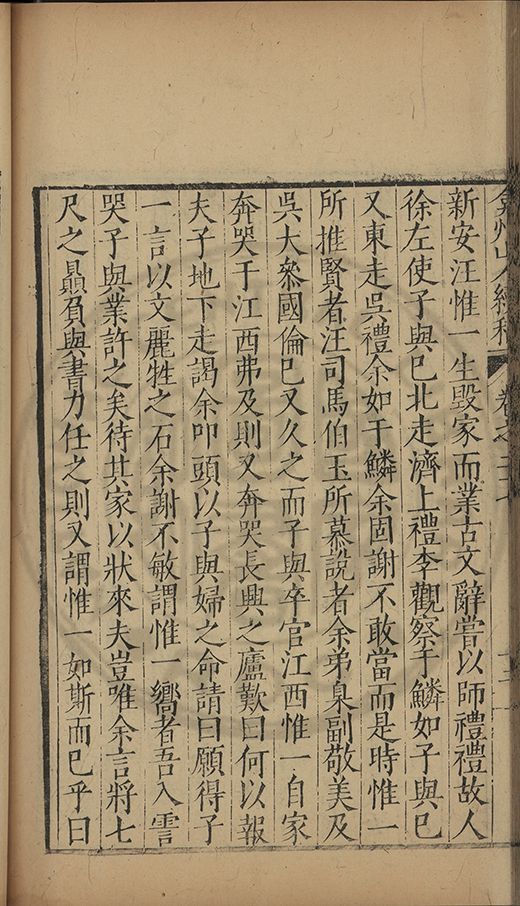 卷之
新安汪惟一生毀家而業古文辭嘗以師禮禮故人
徐左使子與已北走濟上禮李觀察于鱗如子與已
又東走吳禮余如于鱗余固謝不敢當而是時惟一
所推賢者汪司馬伯玉所慕說者余弟臬副敬美及
吳大叅國倫已又久之而子與卒官江西惟一自家
奔哭于江西弗及則又奔哭長興之廬歎曰何以報
夫子地下走謁余叩頭以子與婦之命請曰願得子
一言以文麗牲之石余謝不敏謂惟一嚮者吾入霅
哭子與業許之矣待其家以狀來夫豈唯余言將七
尺之贔負與書力任之則又謂惟一如斯而已乎曰